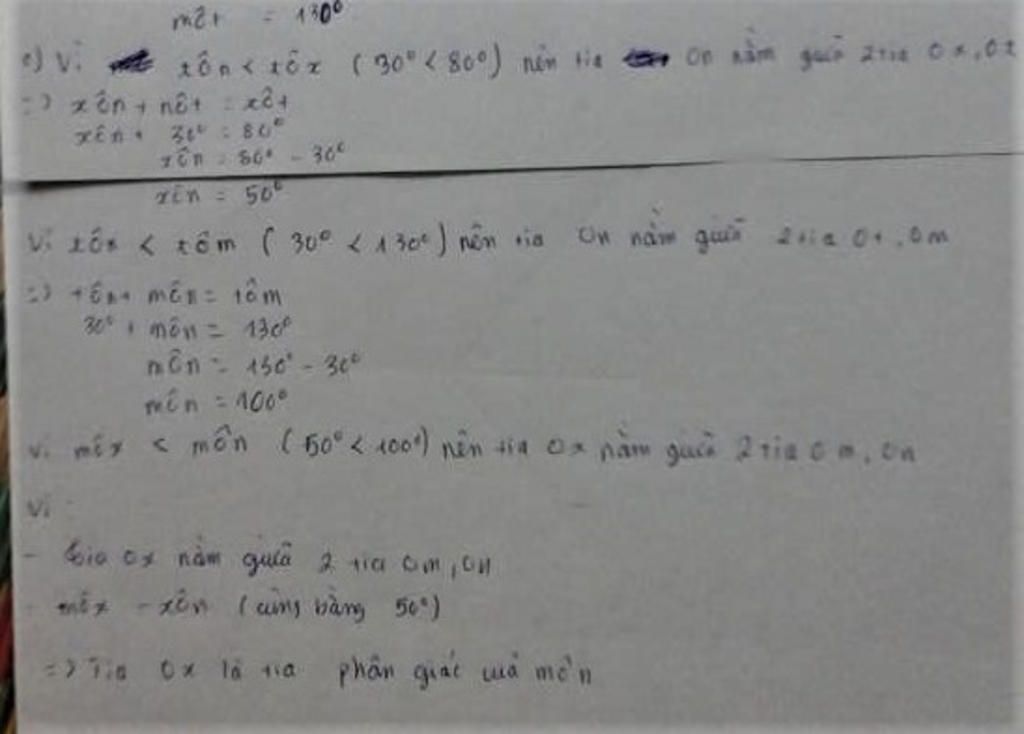 môt = 130°
c) Vì tôn < tôx (30° < 80°) nên tia On nằm giữa 2 tia Ox, Ot
=> xôn + nôt = xôt
xôn + 30° = 80°
xôn = 80° - 30°
xôn = 50°
Vì tôn < tôm (30° < 130°) nên tia On nằm giữa 2 tia Ot, Om
=> tôn + môn = tôm
30° + môn = 130°
môn = 130° - 30°
môn = 100°
Vì môx < môn (50° < 100°) nên tia Ox nằm giữa 2 tia Om, On
Vì
- tia Ox nằm giữa 2 tia Om, On
- môx = xôn (cùng bằng 50°)
=> Tia Ox là tia phân giác của môn